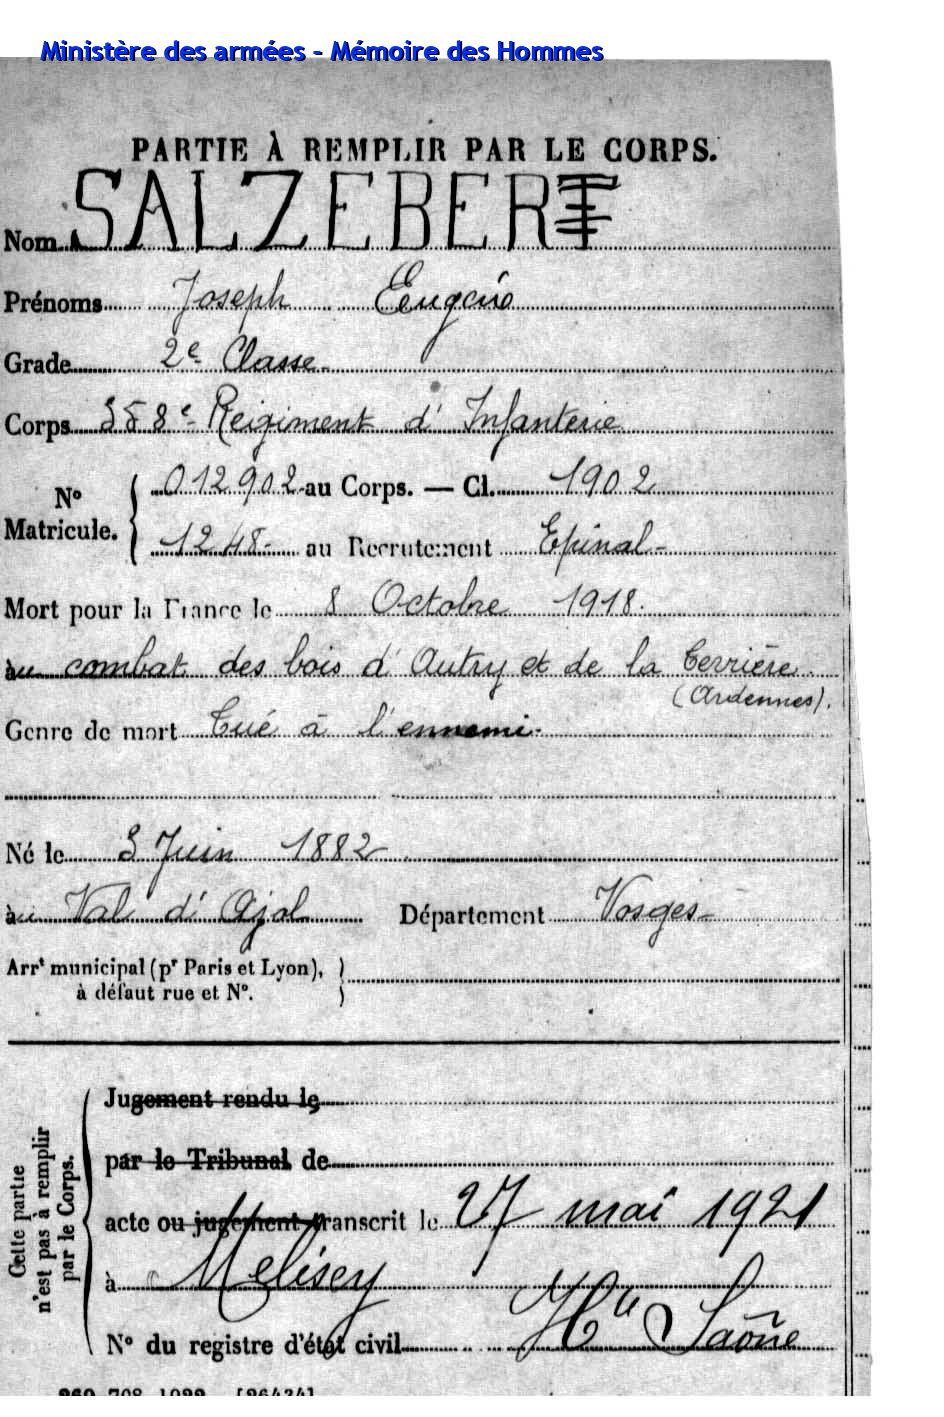 Ministère des armées - Mémoire des Hommes
PARTIE À REMPLIR PAR LE CORPS.
Nom SALZEBER
Prénoms Joseph
Grade 2e Classe
Corps 358e Reigiment d'Infanterie
N° Matricule. 012902 au Corps. — Cl. 1902
1248 - au Recrutement Epinal -
Mort pour la France le 8 Octobre 1918.
au combat des bois d'Autry et de la
(Ardennes).
Genre de mort Tué à l'ennemi -
Né le 3 Juin 1882
au Val d'Ajol Département Vosges -
Arrt municipal (pr Paris et Lyon),
à défaut rue et N°.
Cette partie n'est pas à remplir par le Corps.
Jugement rendu le
par le Tribunal de
acte ou jugement transcrit le 27 mai 1921
à Melisey
N° du registre d'état civil Hte Saône
260-708-1922. [26434]